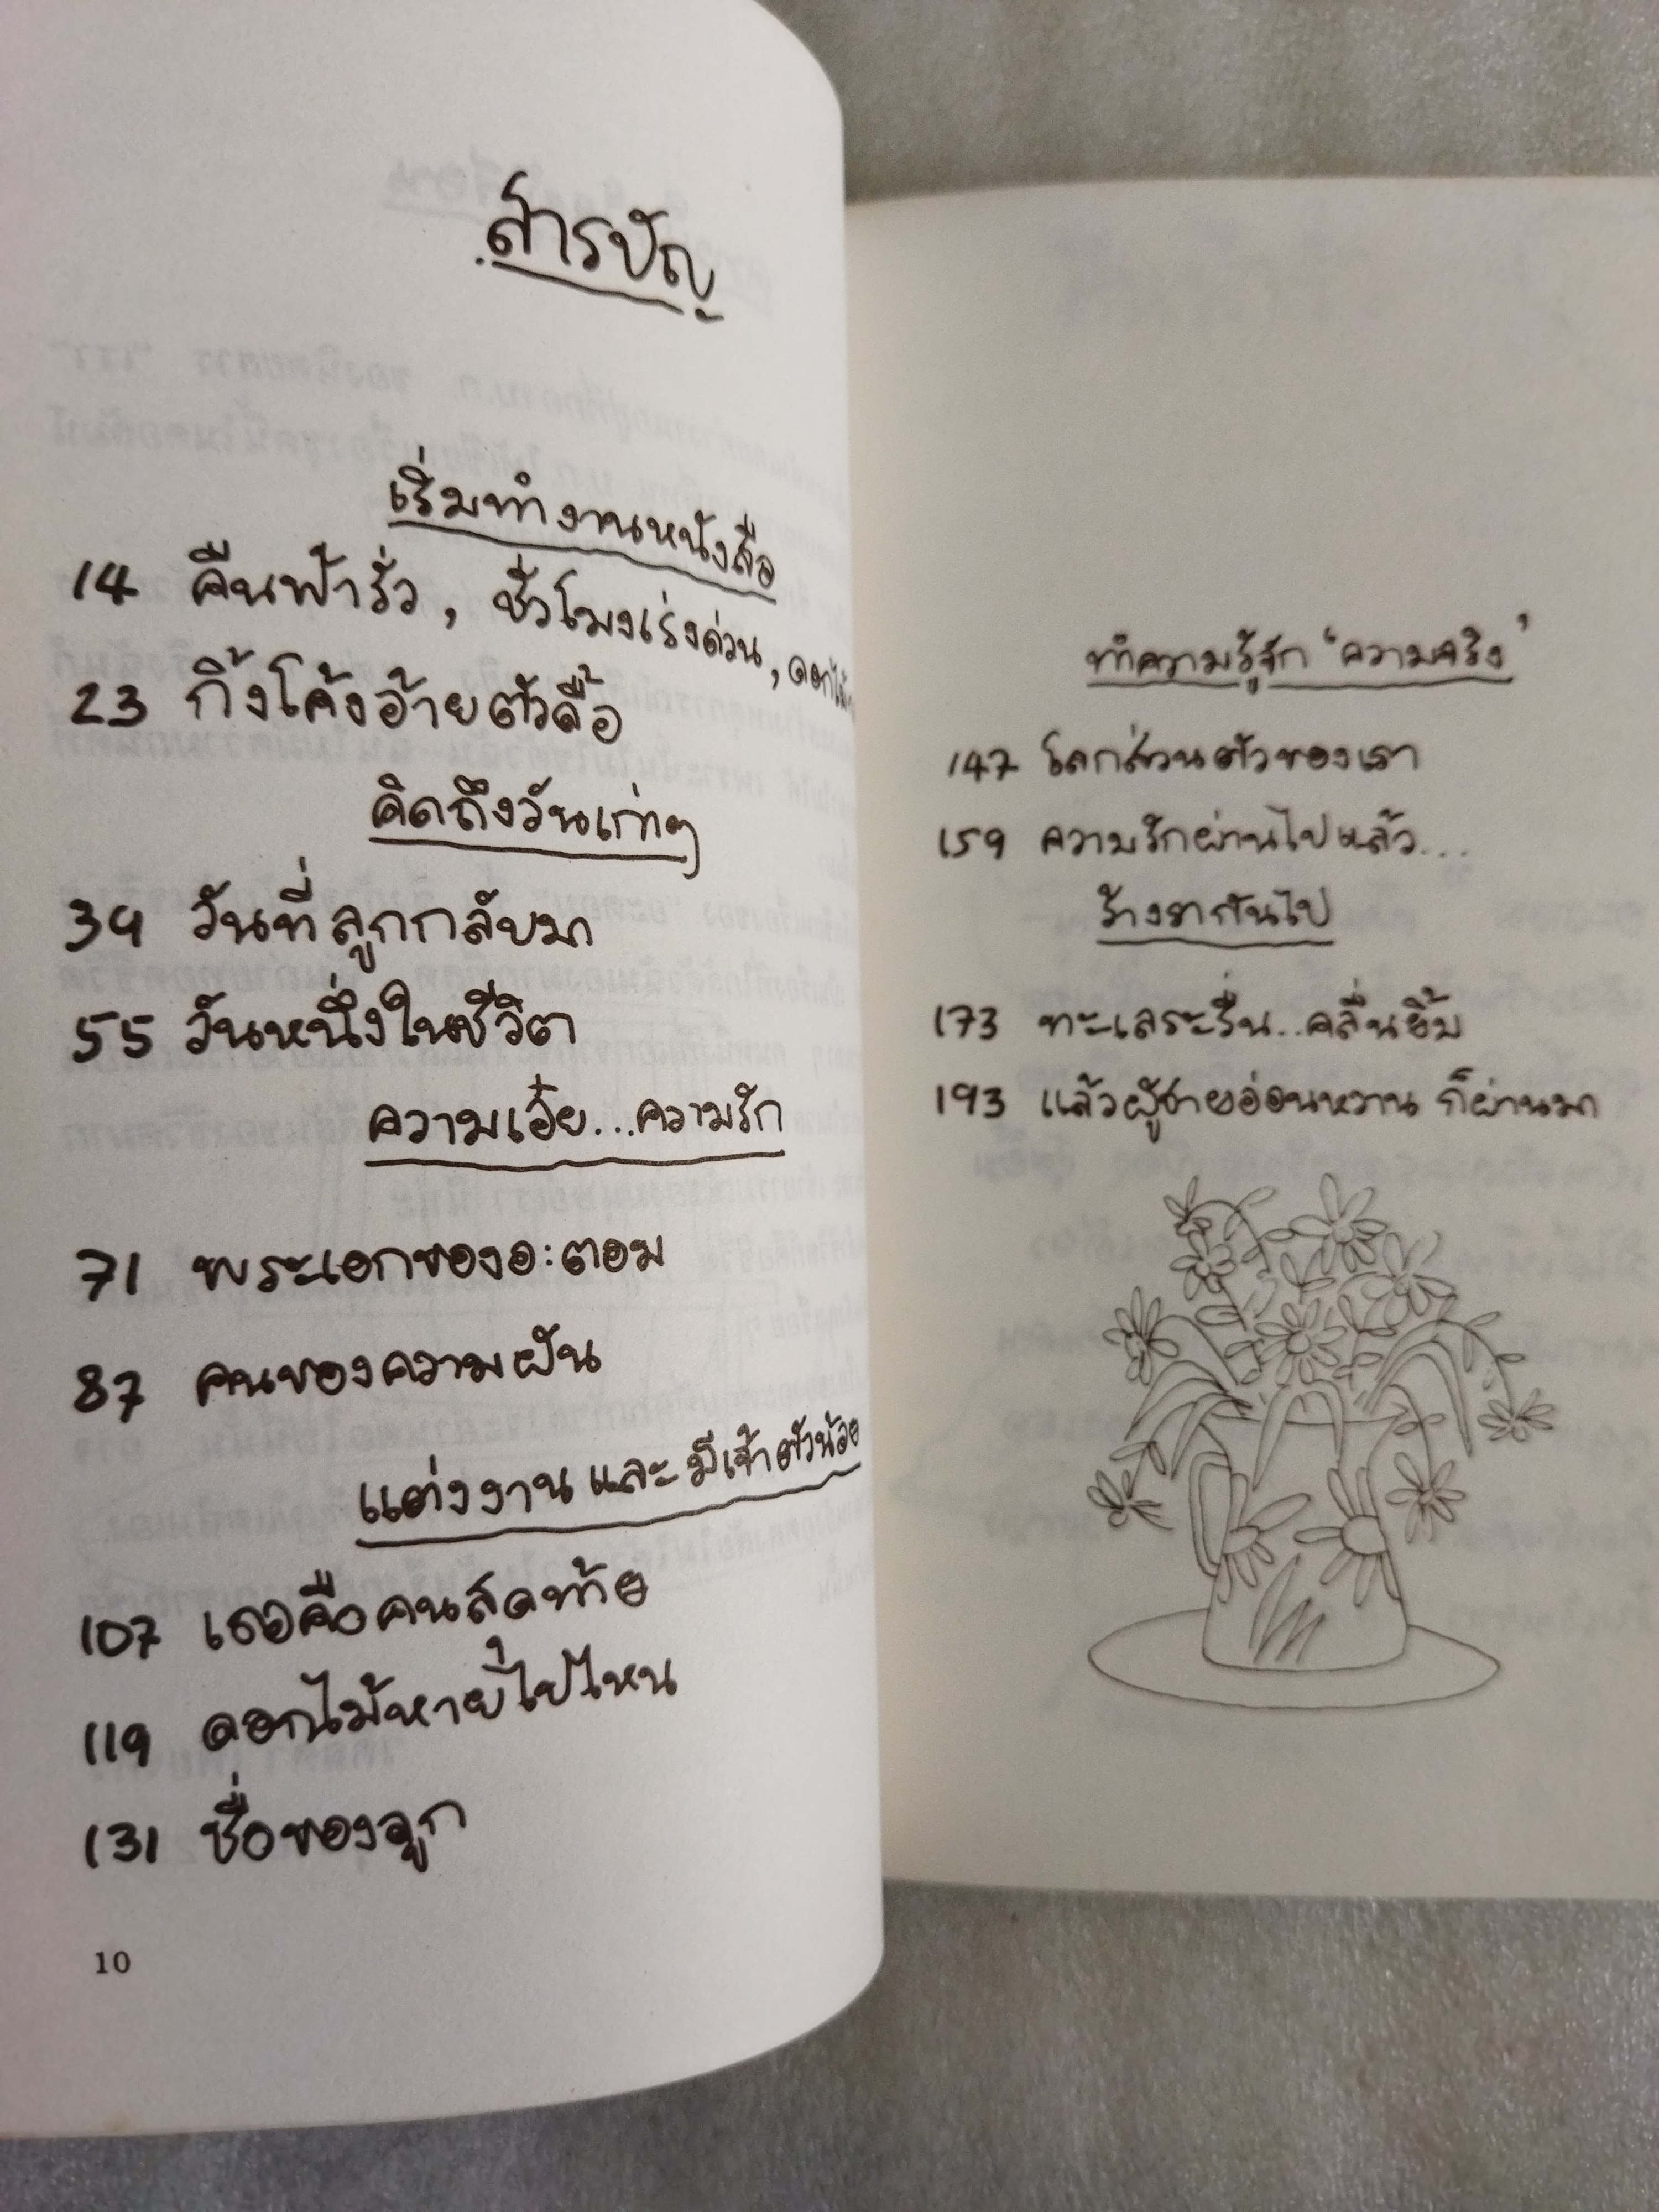 สารบัญ
เริ่มทำงานหนังสือ
14 คืนฟ้ารั่ว, ชั่วโมงเร่งด่วน, ดอกไม้
23 กิ้งโค้งอ้ายตัวลื้อ
คิดถึงวันเก่าๆ
39 วันที่ลูกกลับมา
55 วันหนึ่งในชีวิต
ความเอ๋ย...ความรัก
71 พระเอกของอะตอม
87 คนของความฝัน
แต่งงาน และ มีเจ้าตัวน้อย
107 เธอคือคนสุดท้าย
119 ดอกไม้หายไปไหน
131 ชื่อของลูก
10
ทำความรู้จัก 'ความจริง'
147 โลกส่วนตัวของเรา
159 ความรักผ่านไปแล้ว...
ร้างรากันไป
173 ทะเลระรื่น..คลื่นยิ้ม
193 แล้วผู้ชายอ่อนหวาน ก็ผ่านมา